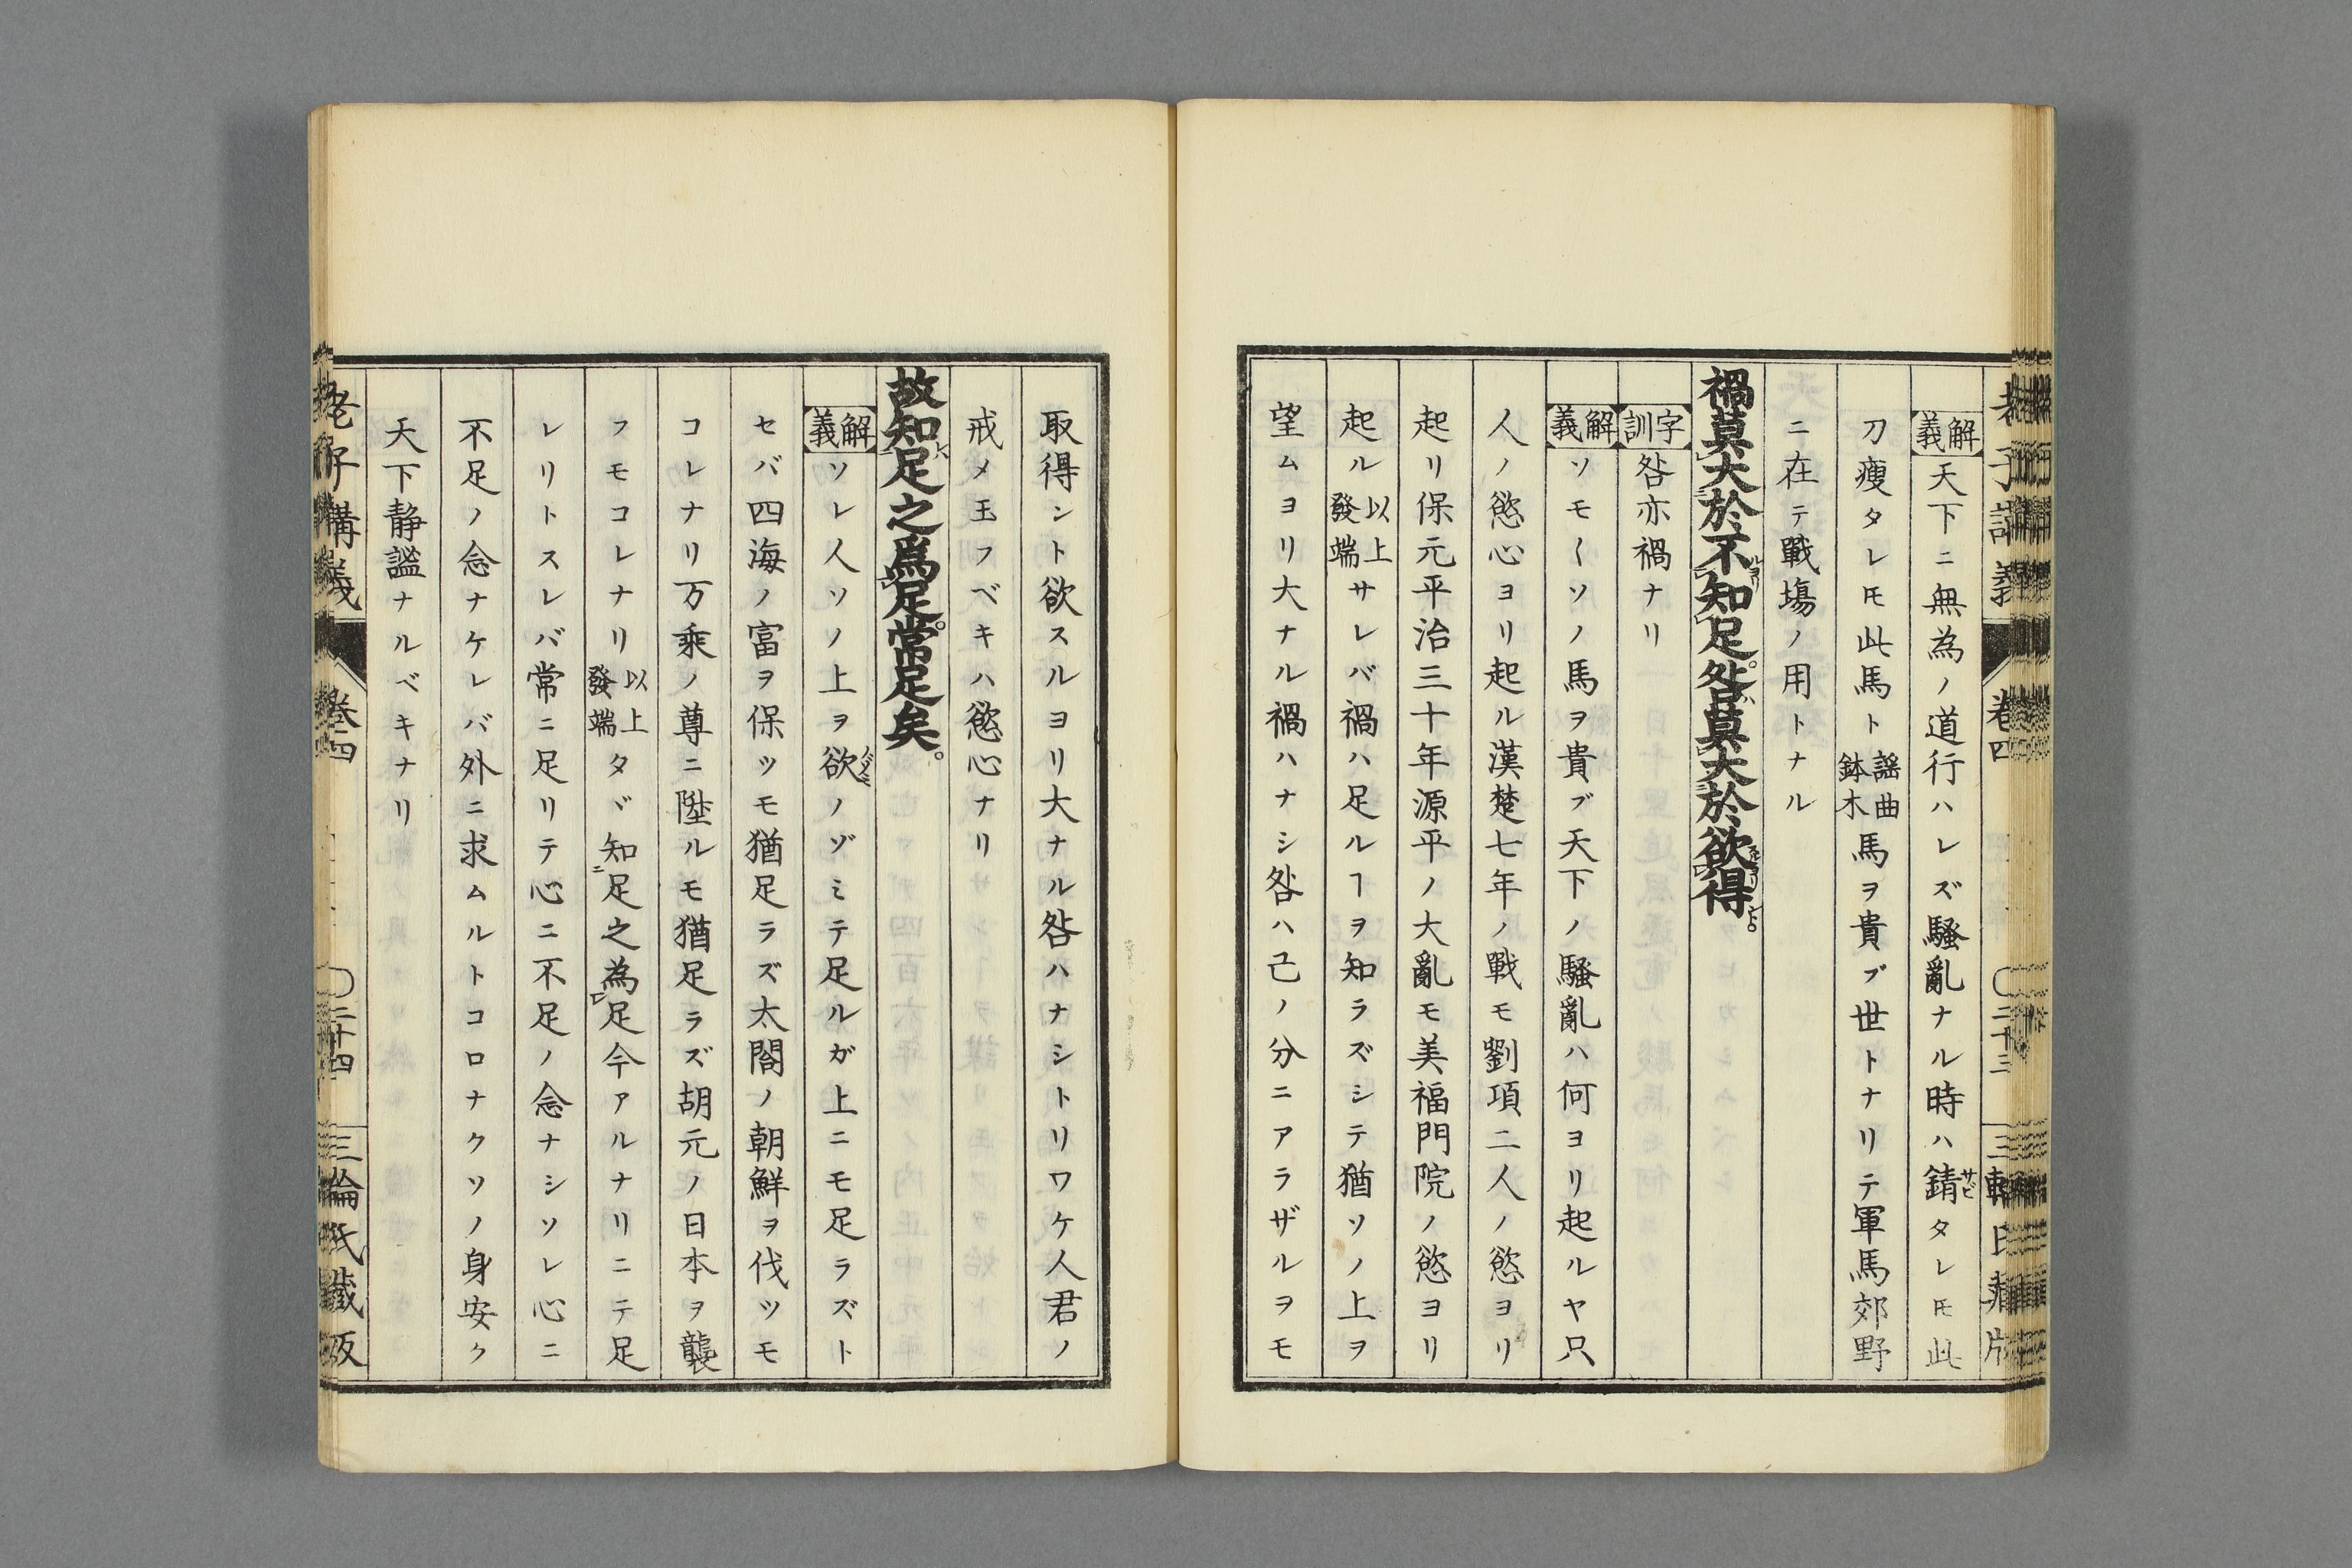 老子講義 卷四 〇二十三 三輪氏藏版
解義 天下ニ無為ノ道行ハレズ騷亂ナル時ハ錆タレ𪜈此
刀瘦タレ𪜈此馬ト謡曲鉢木馬ヲ貴ブ世トナリテ軍馬郊野
ニ在テ戰場ノ用トナル
禍莫大於不知足。咎莫大於欲得。
字訓 咎亦禍ナリ
解義 ソモ〱ソノ馬ヲ貴ブ天下ノ騷亂ハ何ヨリ起ルヤ只
人ノ慾心ヨリ起ル漢楚七年ノ戰モ劉項二人ノ慾ヨリ
起リ保元平治三十年源平ノ大亂モ美福門院ノ慾ヨリ
起ル以上發端サレバ禍ハ足ルヿヲ知ラズシテ猶ソノ上ヲ
望ムヨリ大ナル禍ハナシ咎ハ己ノ分ニアラザルヲモ
取得ント欲スルヨリ大ナル咎ハナシトリワケ人君ノ
戒メ玉フベキハ慾心ナリ
故知足之為足。常足矣。
解義 ソレ人ソノ上ヲ欲ノゾミテ足ルガ上ニモ足ラズト
セバ四海ノ富ヲ保ツモ猶足ラズ太閤ノ朝鮮ヲ伐ツモ
コレナリ万乘ノ尊ニ陞ルモ猶足ラズ胡元ノ日本ヲ襲
フモコレナリ以上發端タヾ知足之為足今アルナリニテ足
レリトスレバ常ニ足リテ心ニ不足ノ念ナシソレ心ニ
不足ノ念ナケレバ外ニ求ムルトコロナクソノ身安ク
天下静謐ナルベキナリ
老子講義 卷四 〇二十四 三輪氏藏版